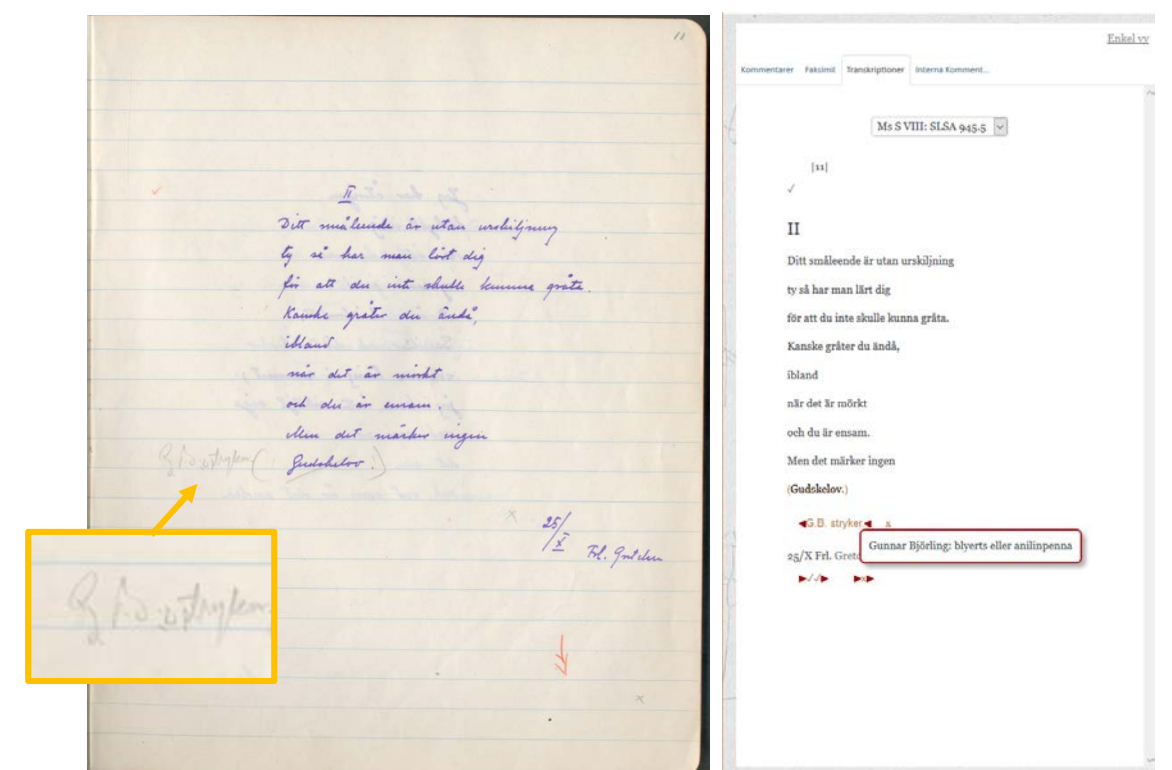 11
II
Ditt småleende är utan urskiljning
ty så har man lärt dig
för att du inte skulle kunna gråta.
Kanske gråter du ändå,
ibland
när det är mörkt
och du är ensam.
Men det märker ingen
G.B. stryker (Gudskelov.)
x
25/X Frl. Gretchen
x
G.B. stryker
Enkel vy
Kommentarer Faksimil Transkriptioner Interna Komment...
Ms S VIII: SLSA 945.5
|11|
✓
II
Ditt småleende är utan urskiljning
ty så har man lärt dig
för att du inte skulle kunna gråta.
Kanske gråter du ändå,
ibland
när det är mörkt
och du är ensam.
Men det märker ingen
(Gudskelov.)
◄G.B. stryker◄ x
Gunnar Björling: blyerts eller anilinpenna
25/X Frl. Gretc
►/✓/► ►x►